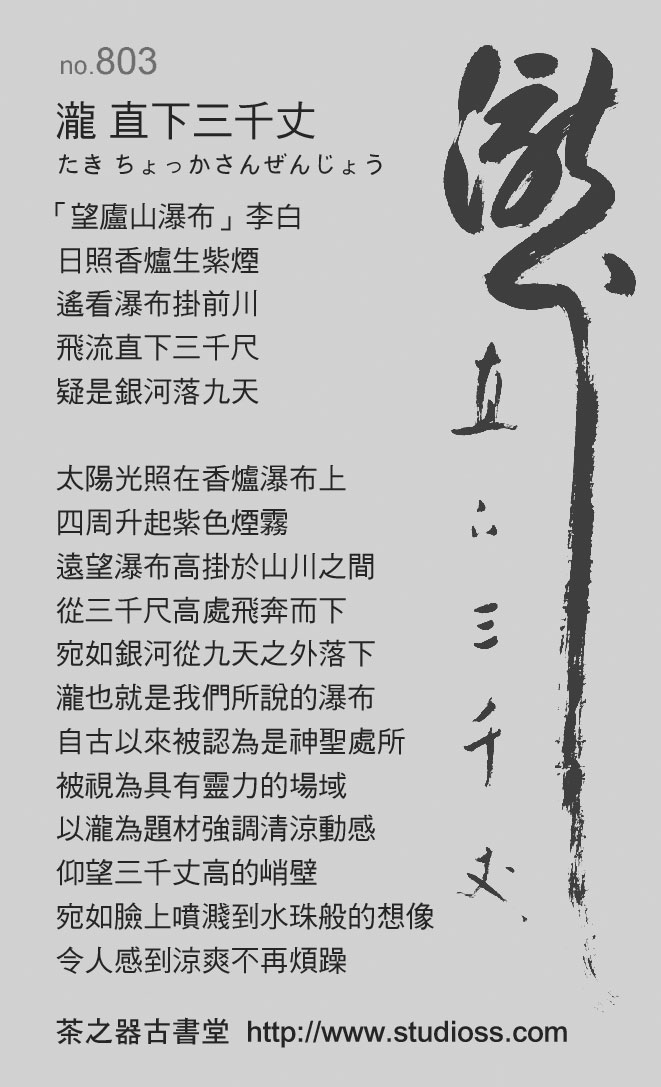 no.803
瀧 直下三千丈
たき ちょっかさんぜんじょう
「望廬山瀑布」李白
日照香爐生紫煙
遙看瀑布掛前川
飛流直下三千尺
疑是銀河落九天
太陽光照在香爐瀑布上
四周升起紫色煙霧
遠望瀑布高掛於山川之間
從三千尺高處飛奔而下
宛如銀河從九天之外落下
瀧也就是我們所說的瀑布
自古以來被認為是神聖處所
被視為具有靈力的場域
以瀧為題材強調清涼動感
仰望三千丈高的峭壁
宛如臉上噴濺到水珠般的想像
令人感到涼爽不再煩躁
茶之器古書堂 http://www.studioss.com
瀧
直下三千丈